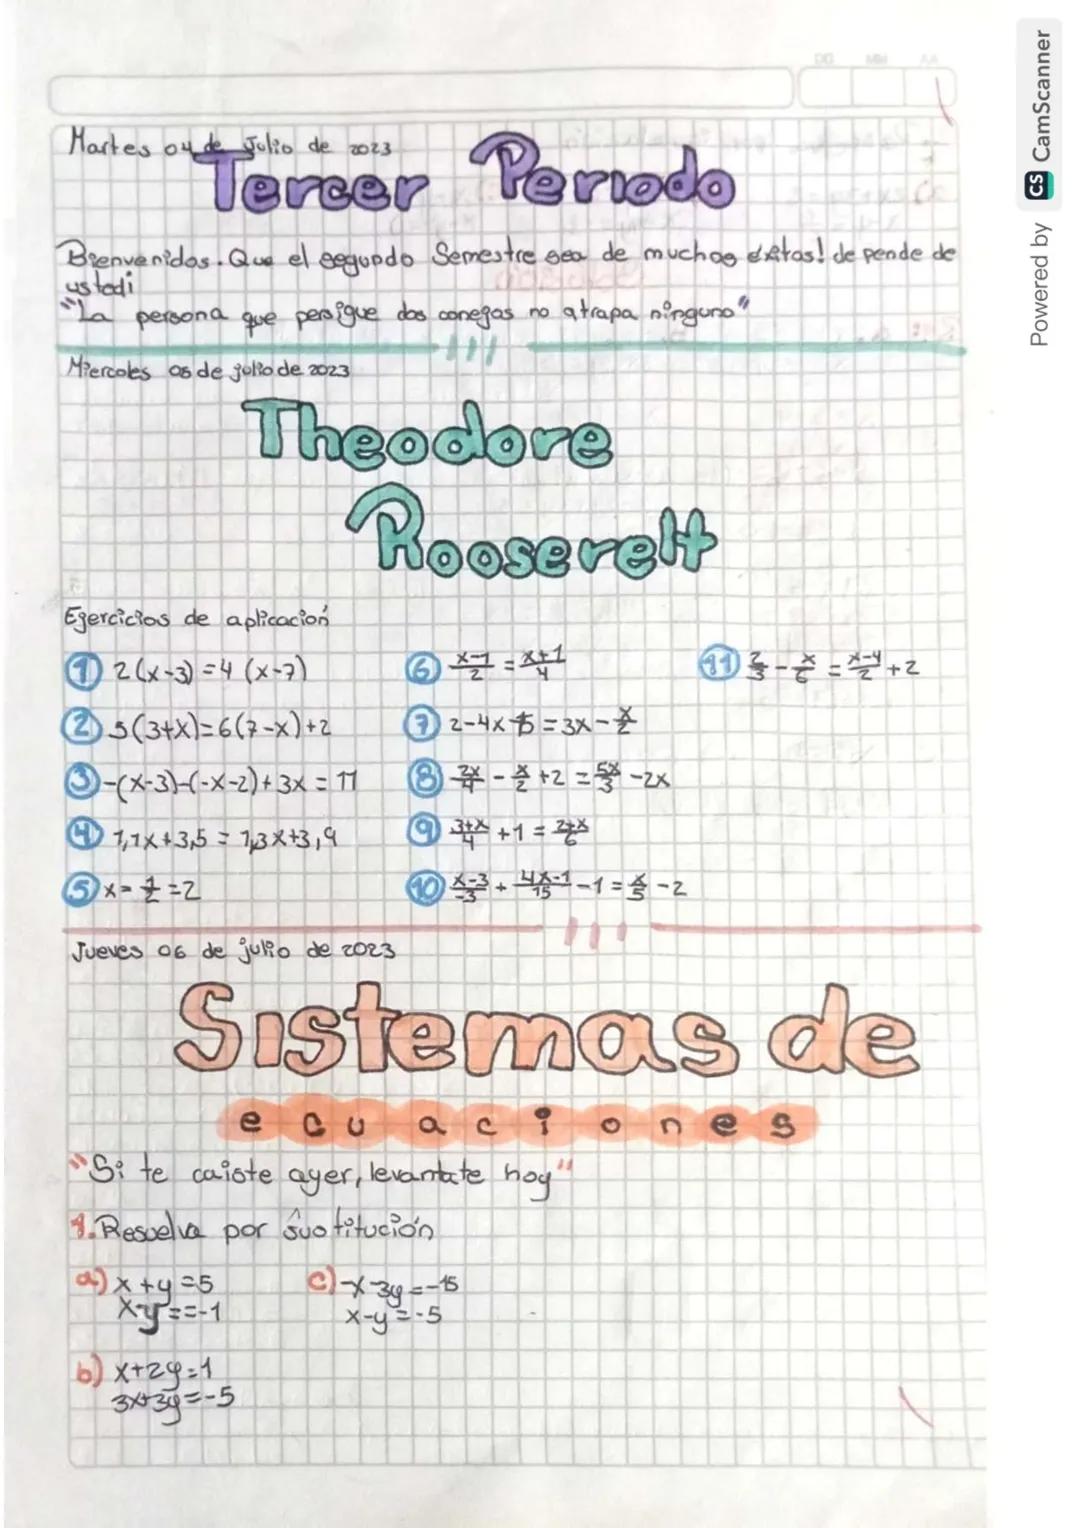 Martes 04 de Julio de 2023
Tercer Periodo
Bienvenidos. Que el segundo Semestre sea de muchos éxitos! de pende de
ustedi
"La persona que persigue dos conejos no atrapa ninguno"
Miercoles 05 de julio de 2023
Theodore
Roosevelt
Ejercicios de aplicación
① 2(x-3)=4(x-7)
② 5(3+x)=6(7-x)+2
③ -(x-3)-(-x-2)+3x=11
④ 1,1x+3,5=1,3x+3,9
⑤ x-1/2=2
⑥ x-1/2=x+1/4
⑦ 2-4x+5=3x-x/2
⑧ 2x/4-x/2+2=5x/3-2x
⑨ 3+x/4+1=2+x/6
⑩ x-3/-3+4x-1/15-1=x/5-2
⑪ 2/3-x/6=x-4/2+2
Jueves 06 de julio de 2023
Sistemas de
ecuaciones
"Si te caiste ayer, levantate hoy"
1. Resuelva por sustitución
a) x+y=5
x-y==-1
b) x+2y=1
3x+3y=-5
c) -x-3y=-15
x-y=-5
Powered by CS CamScanner